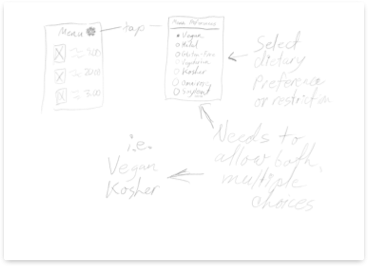 Menu
tap
Menu Preferences
Vegan
Halal
Gluten-Free
Vegetarian
Kosher
Select
dietary
Preference
or restriction
Needs to
allow both,
multiple
choices
i.e.
Vegan
Kosher